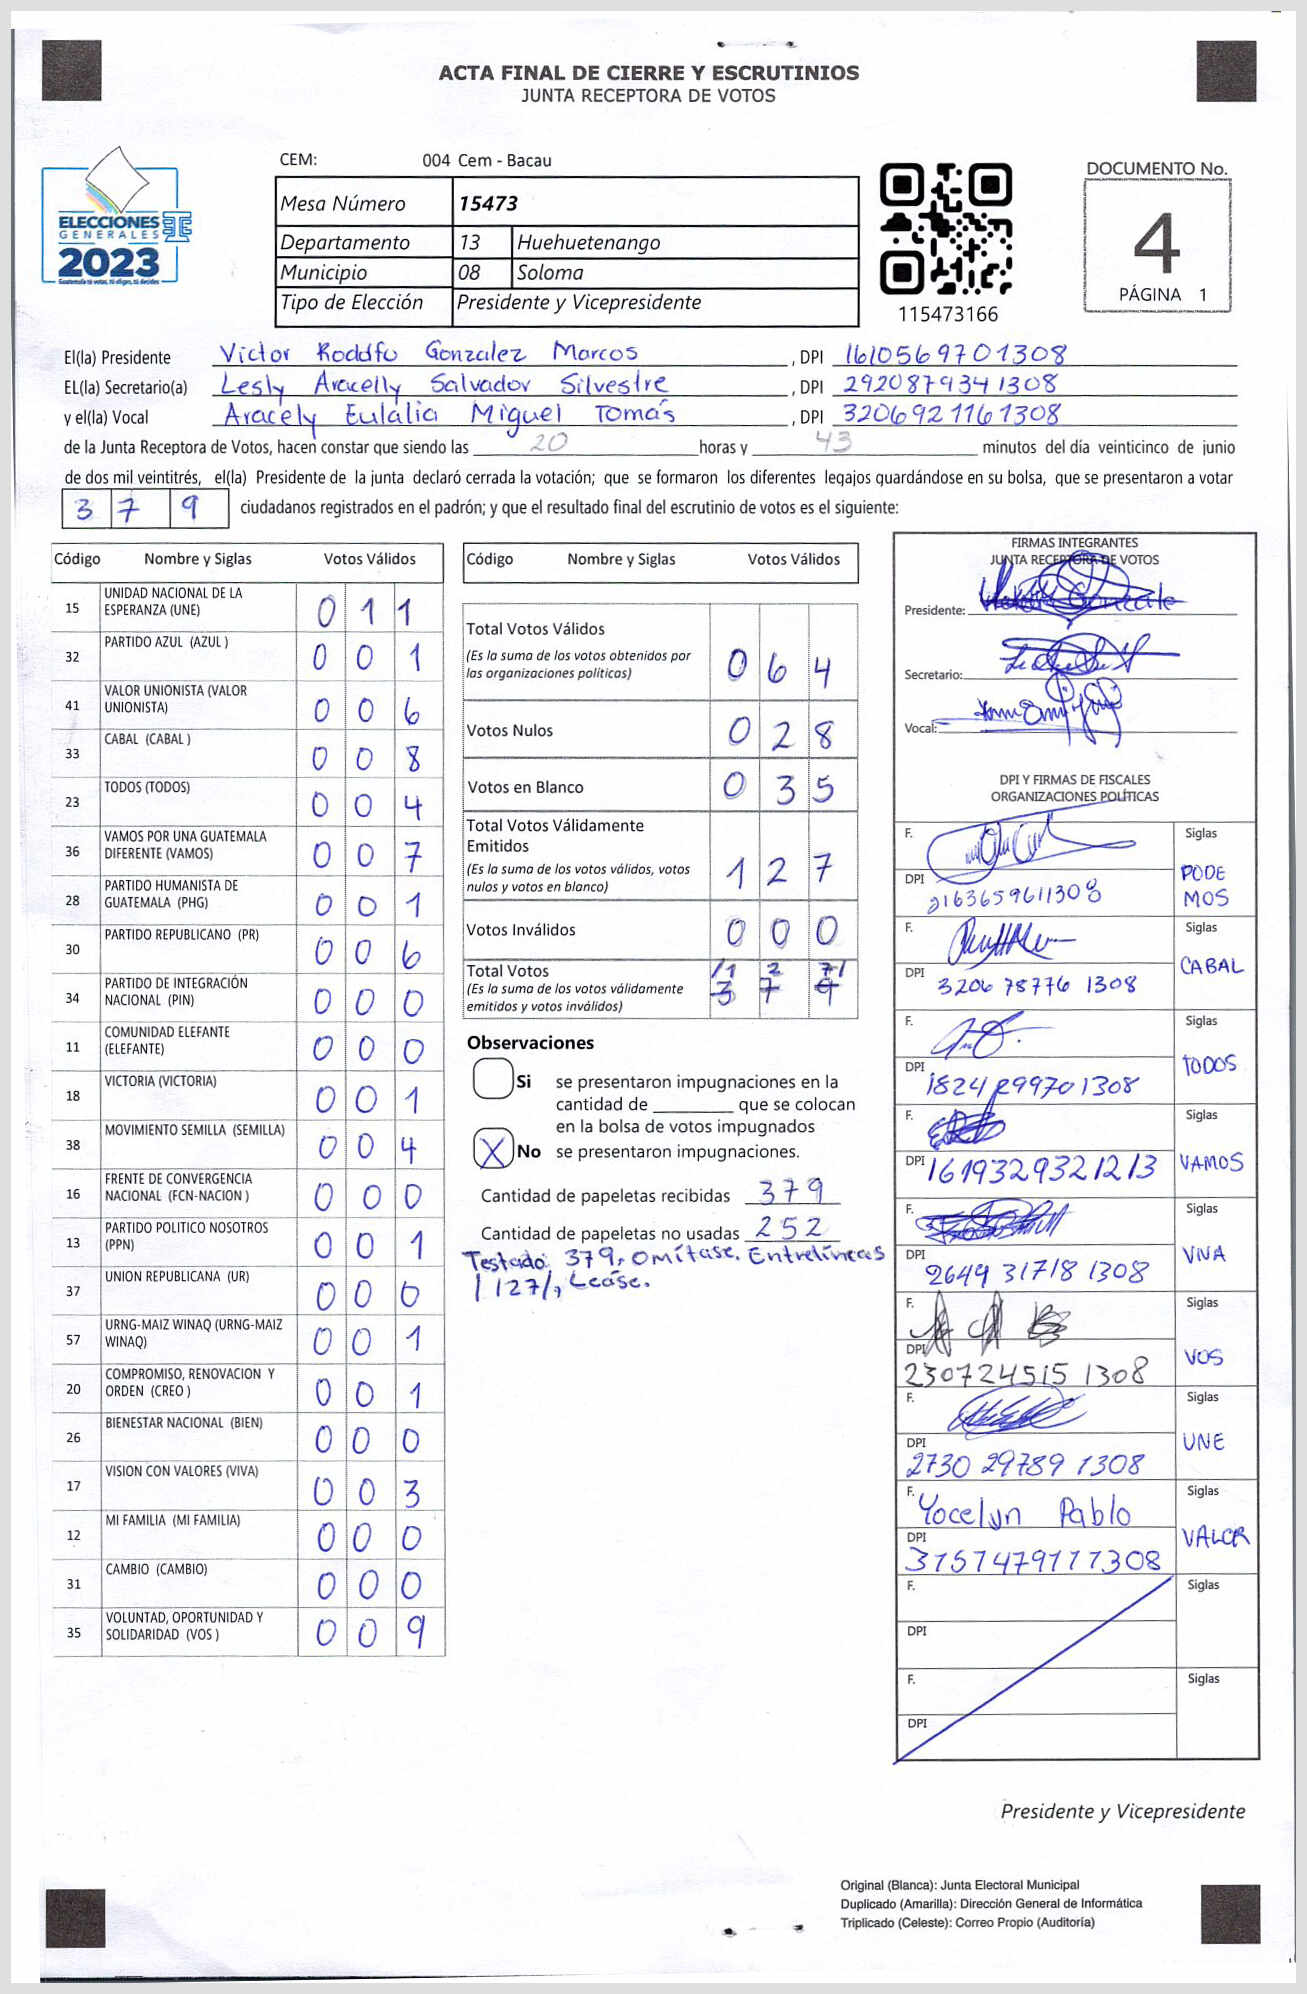 ACTA FINAL DE CIERRE Y ESCRUTINIOS
JUNTA RECEPTORA DE VOTOS
ELECCIONES
GENERALES
2023
Guatemala tú votas, tú eliges, tú decides
CEM: 004 Cem - Bacau
Mesa Número 15473
Departamento 13 Huehuetenango
Municipio 08 Soloma
Tipo de Elección Presidente y Vicepresidente
115473166
DOCUMENTO No.
4
PÁGINA 1
El(la) Presidente Victor Rodolfo Gonzalez Marcos , DPI 1610569701308
EL(la) Secretario(a) Lesly Aracelly Salvador Silvestre , DPI 2920879341308
y el(la) Vocal Aracely Eulalia Miguel Tomás , DPI 3206921161308
de la Junta Receptora de Votos, hacen constar que siendo las 20 horas y 43 minutos del día veinticinco de junio
de dos mil veintitrés, el(la) Presidente de la junta declaró cerrada la votación; que se formaron los diferentes legajos guardándose en su bolsa, que se presentaron a votar
3 7 9 ciudadanos registrados en el padrón; y que el resultado final del escrutinio de votos es el siguiente:
Código Nombre y Siglas Votos Válidos
15 UNIDAD NACIONAL DE LA
ESPERANZA (UNE) 0 1 1
32 PARTIDO AZUL (AZUL ) 0 0 1
41 VALOR UNIONISTA (VALOR
UNIONISTA) 0 0 6
33 CABAL (CABAL ) 0 0 8
23 TODOS (TODOS) 0 0 4
36 VAMOS POR UNA GUATEMALA
DIFERENTE (VAMOS) 0 0 7
28 PARTIDO HUMANISTA DE
GUATEMALA (PHG) 0 0 1
30 PARTIDO REPUBLICANO (PR) 0 0 6
34 PARTIDO DE INTEGRACIÓN
NACIONAL (PIN) 0 0 0
11 COMUNIDAD ELEFANTE
(ELEFANTE) 0 0 0
18 VICTORIA (VICTORIA) 0 0 1
38 MOVIMIENTO SEMILLA (SEMILLA) 0 0 4
16 FRENTE DE CONVERGENCIA
NACIONAL (FCN-NACION ) 0 0 0
13 PARTIDO POLITICO NOSOTROS
(PPN) 0 0 1
37 UNION REPUBLICANA (UR) 0 0 0
57 URNG-MAIZ WINAQ (URNG-MAIZ
WINAQ) 0 0 1
20 COMPROMISO, RENOVACION Y
ORDEN (CREO ) 0 0 1
26 BIENESTAR NACIONAL (BIEN) 0 0 0
17 VISION CON VALORES (VIVA) 0 0 3
12 MI FAMILIA (MI FAMILIA) 0 0 0
31 CAMBIO (CAMBIO) 0 0 0
35 VOLUNTAD, OPORTUNIDAD Y
SOLIDARIDAD (VOS ) 0 0 9
Código Nombre y Siglas Votos Válidos
Total Votos Válidos
(Es la suma de los votos obtenidos por
las organizaciones políticas) 0 6 4
Votos Nulos 0 2 8
Votos en Blanco 0 3 5
Total Votos Válidamente
Emitidos
(Es la suma de los votos válidos, votos
nulos y votos en blanco) 1 2 7
Votos Inválidos 0 0 0
Total Votos /1 2 7/
(Es la suma de los votos válidamente
emitidos y votos inválidos) 3 7 9
Observaciones
Si se presentaron impugnaciones en la
cantidad de ________ que se colocan
en la bolsa de votos impugnados
X No se presentaron impugnaciones.
Cantidad de papeletas recibidas 379
Cantidad de papeletas no usadas 252
Testado: 379, Omítase. Entrelíneas
/127/, Léase.
FIRMAS INTEGRANTES
JUNTA RECEPTORA DE VOTOS
Presidente:
Secretario:
Vocal:
DPI Y FIRMAS DE FISCALES
ORGANIZACIONES POLÍTICAS
F. Siglas
DPI 2163659611308 PODE
MOS
F. Siglas
DPI 3206 78776 1308 CABAL
F. Siglas
DPI 1824 29970 1308 TODOS
F. Siglas
DPI 1619329321213 VAMOS
F. Siglas
DPI 2649 31718 1308 VIVA
F. Siglas
DPI 230724515 1308 VOS
F. Siglas
DPI 2730 29789 1308 UNE
F. Yocelyn Pablo Siglas
DPI 3157479171308 VALOR
F. Siglas
DPI
F. Siglas
DPI
Presidente y Vicepresidente
Original (Blanca): Junta Electoral Municipal
Duplicado (Amarilla): Dirección General de Informática
Triplicado (Celeste): Correo Propio (Auditoría)